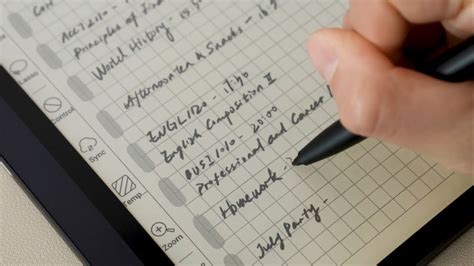 Principles of
World History -
Afternoon tea & Snacks -
ENGL1120 - 17:40
English Composition II
BUSI1010 - 20:00
Professional and Career
Homework -
July Party -
Lasso
Control
Sync
Temp.
Zoom